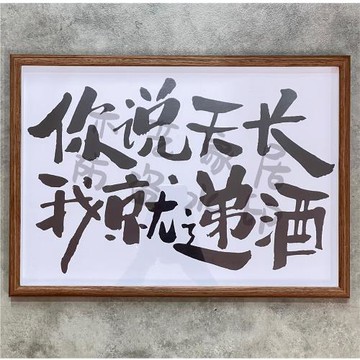 你说天长
我就递酒